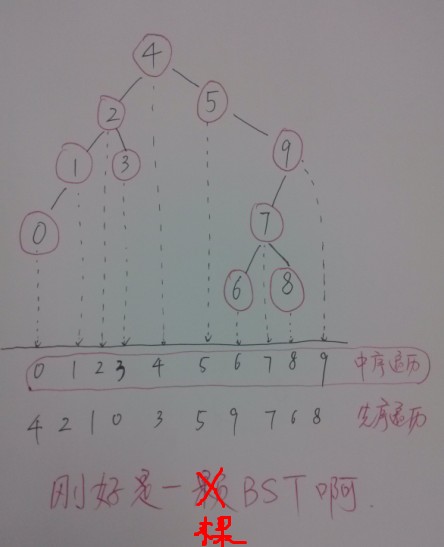 4
2
5
1
3
9
0
7
6
8
0 1 2 3 4 5 6 7 8 9 中序遍历
4 2 1 0 3 5 9 7 6 8 先序遍历
刚好是一颗BST啊.
棵